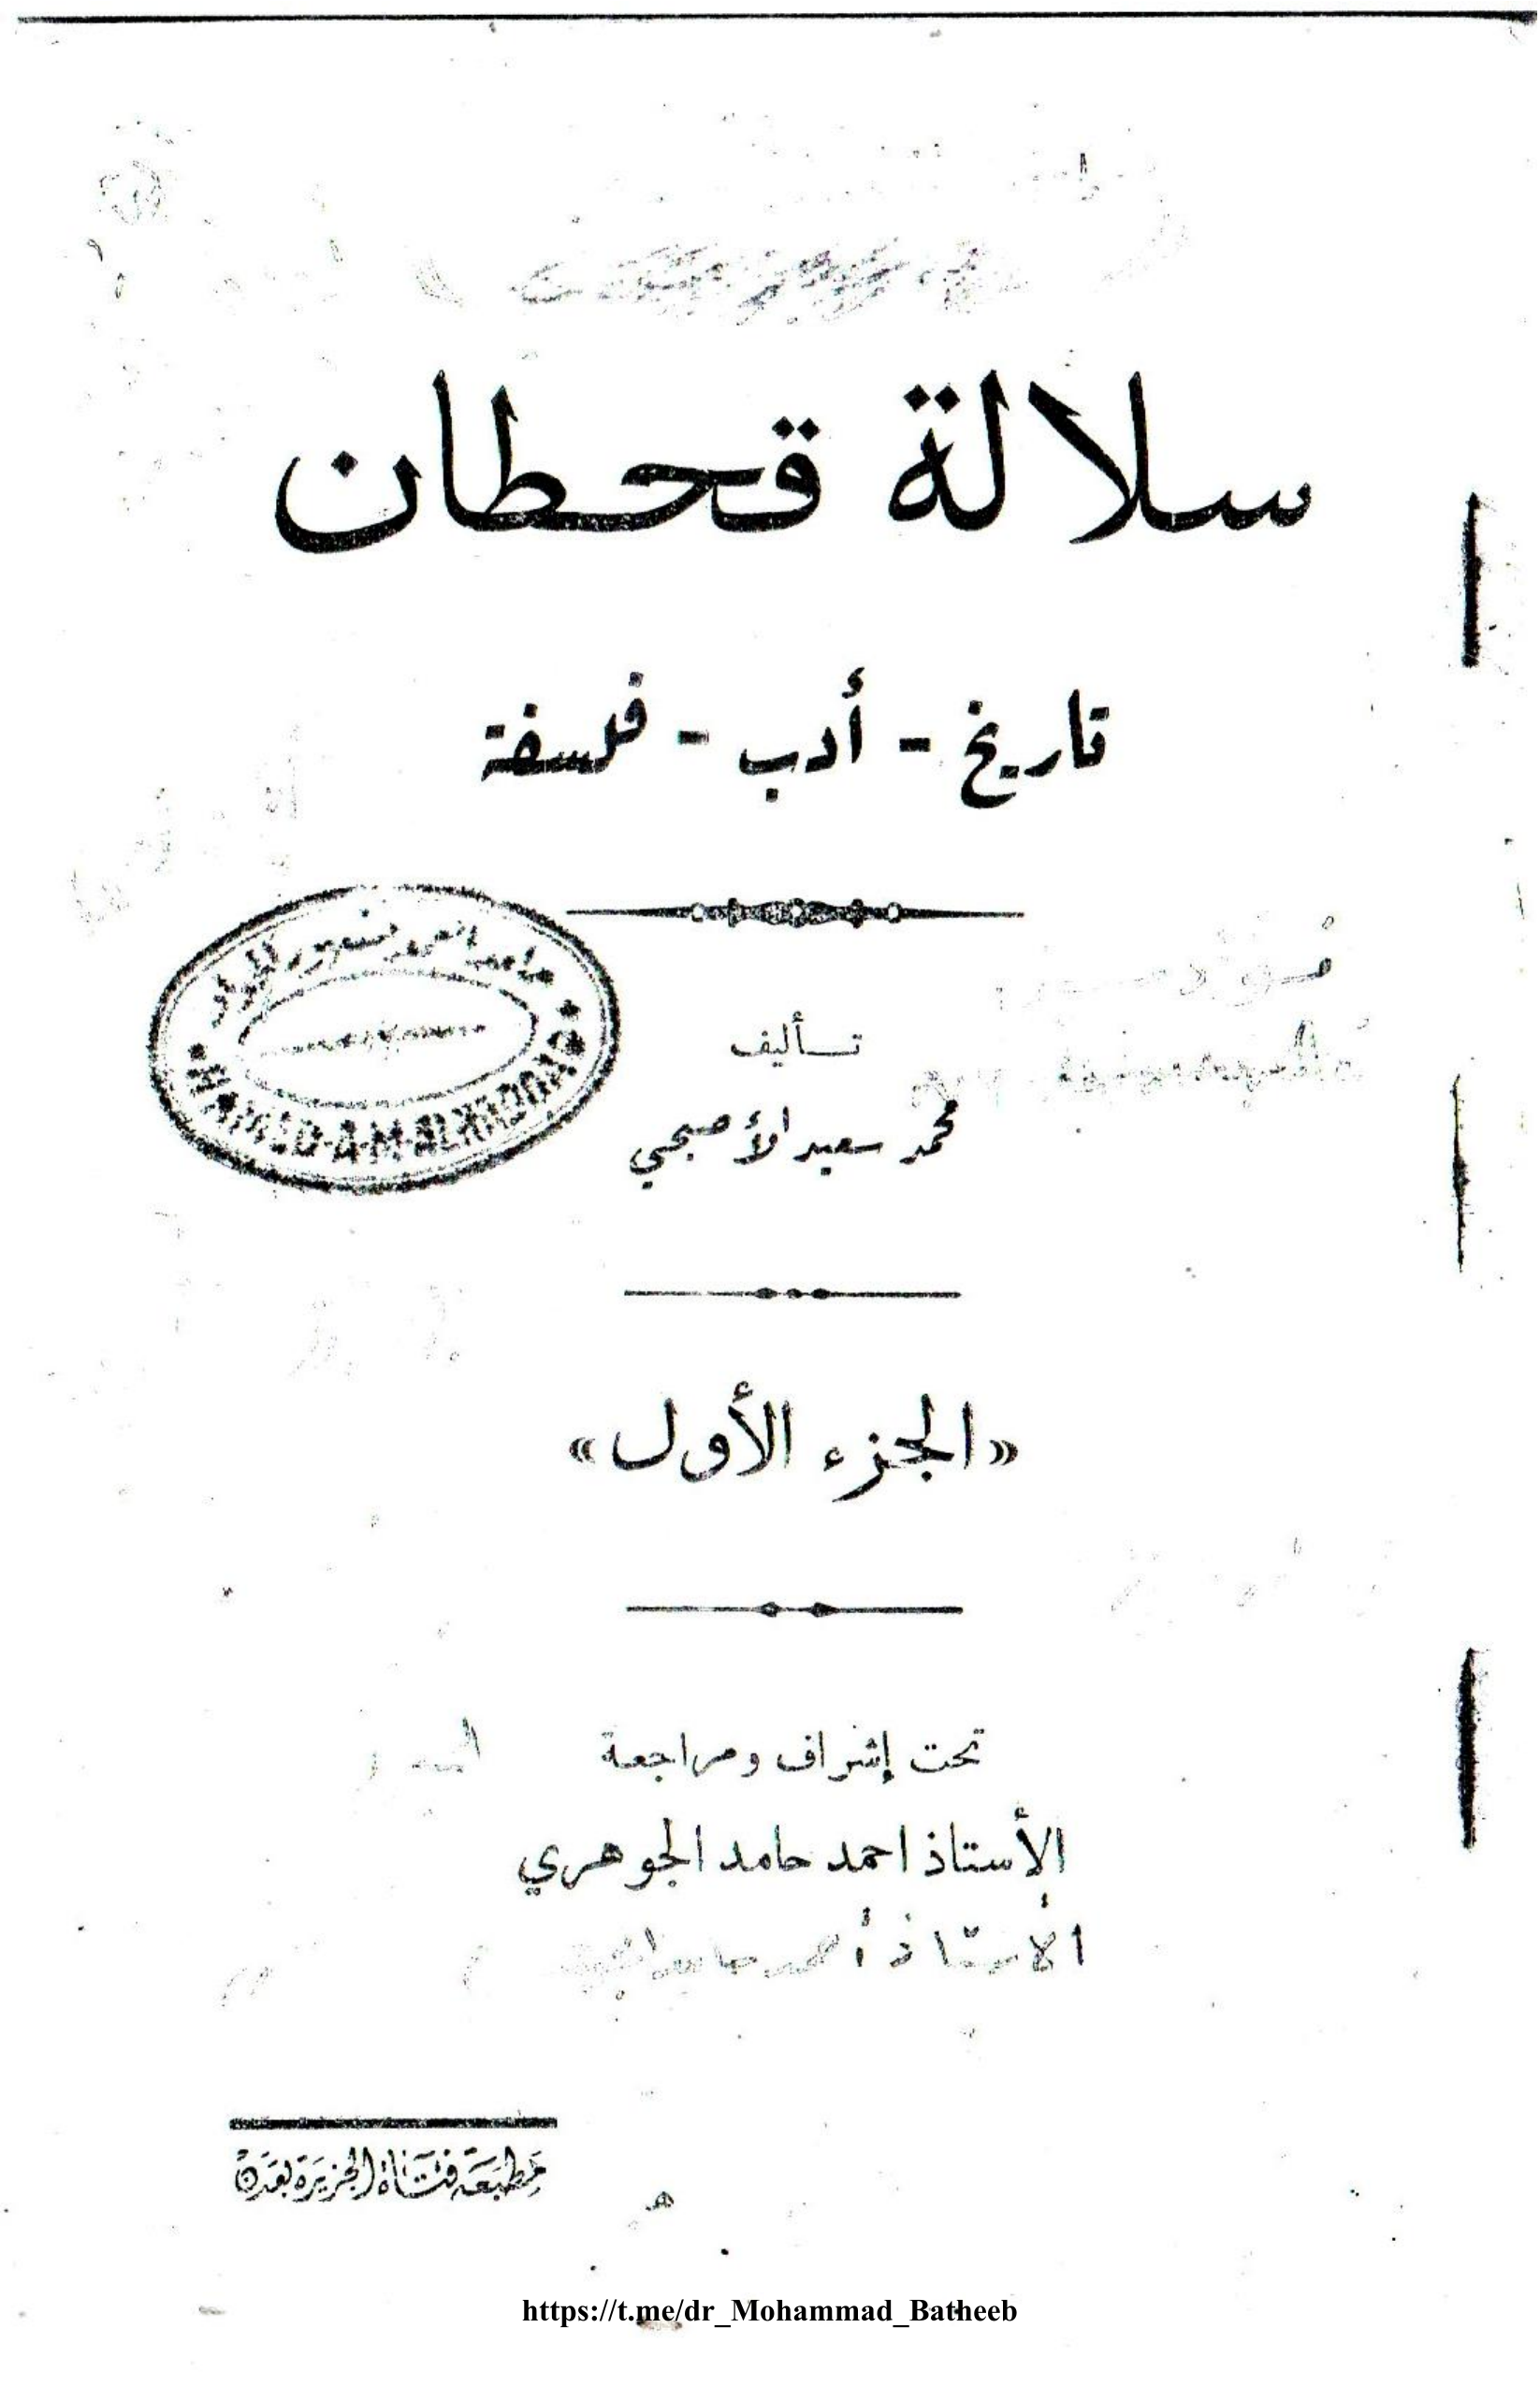 سلالة قحطان
تاريخ - أدب - فلسفة
تأليف
محمد سعيد الأصبحي
«الجزء الأول»
تحت إشراف ومراجعة
الأستاذ احمد حامد الجوهري
الأستاذ أحمد حامد
مطبعة فتاة الجزيرة بعدن
https://t.me/dr_Mohammad_Batheeb